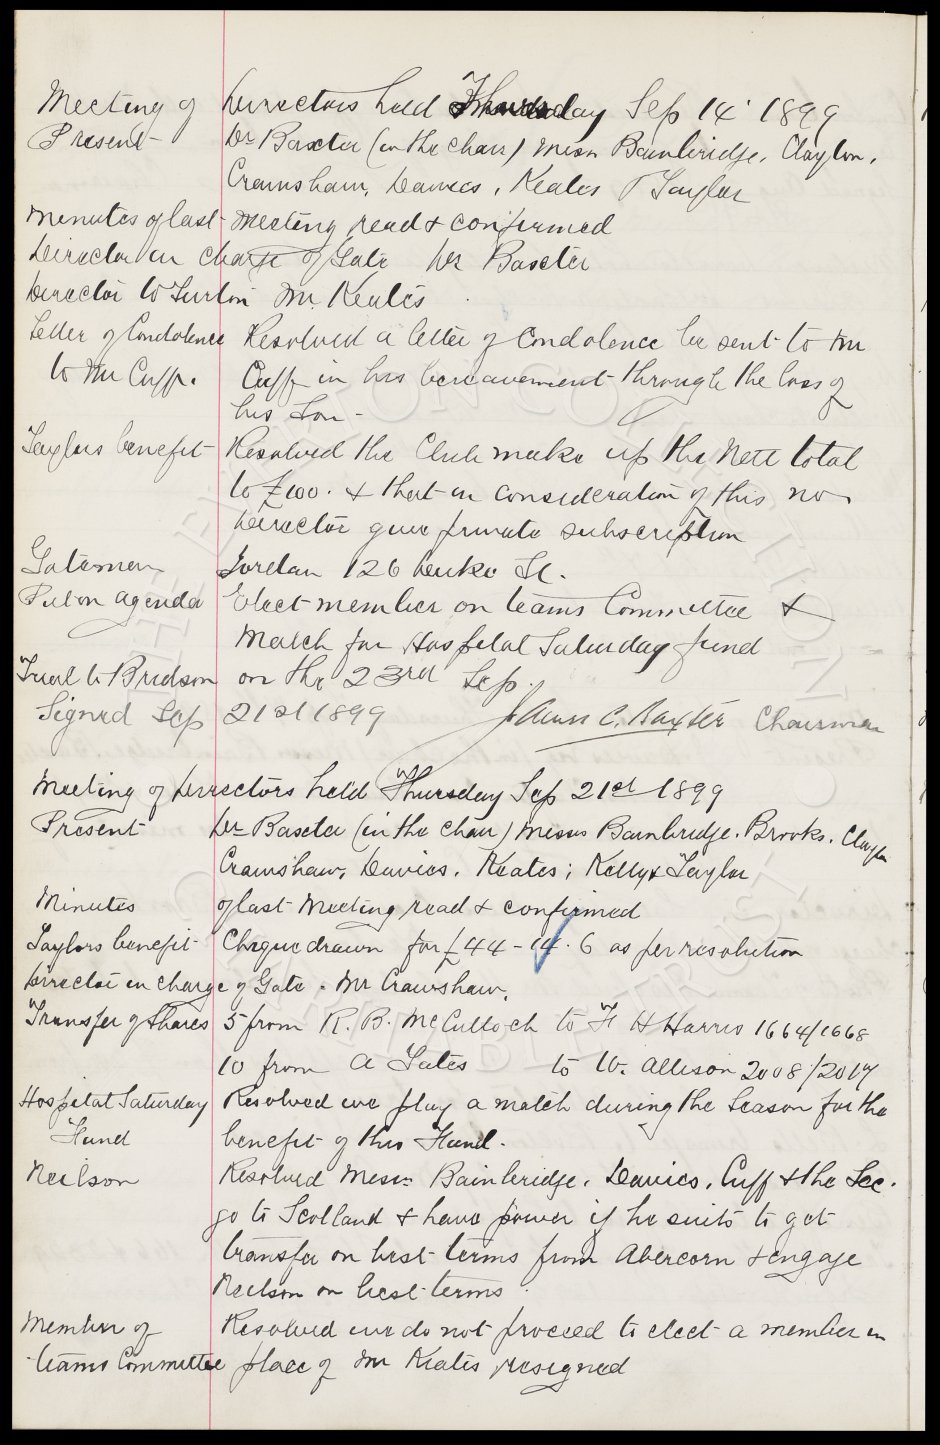 Meeting of Directors held Thursday Sep 14' 1899
Present Dr Baxter (in the chair) Messrs Bainbridge, Clayton,
Crawshaw, Davies, Keates & Taylor
Minutes of last meeting read & confirmed
Director in charge of Gate Dr Baxter
Director to Turton Mr. Keates
Letter of Condolence Resolved a letter of Condolence be sent to Mr
to Mr Cuff. Cuff in his bereavement through the loss of
his Son -
Taylors benefit Resolved the Club make up the Nett total
to £100. & that in consideration of this no
Director give private subscription
Gatemen Jordan 126 Duke St.
Put on agenda Elect member on teams Committee &
Match for Hospital Saturday fund
Trial to Bridson on the 23rd Sep.
Signed Sep 21st 1899 James C. Baxter Chairman
Meeting of Directors held Thursday Sep 21st 1899
Present Dr Baxter (in the chair) Messrs Bainbridge. Brooks. Clayton
Crawshaw, Davies. Keates; Kelly & Taylor
Minutes of last Meeting read & confirmed
Taylors benefit Cheque drawn for £44-14.6 as per resolution
Director in charge of Gate. Mr Crawshaw.
Transfer of Shares 5 from R. B. McCulloch to F H Harris 1664/1668
10 from A Yates to W. Allison 2008/2017
Hospital Saturday Resolved we play a match during the Season for the
Fund benefit of this Fund.
Neilson Resolved Messrs Bainbridge. Davies. Cuff & the Sec.
go to Scotland & have power if he suits to get
transfer on best terms from Abercorn & engage
Neilson on best terms
Member of Resolved we do not proceed to elect a member in
teams Committee place of Mr Keates resigned
THE EVERTON COLLECTION CHARITABLE TRUST